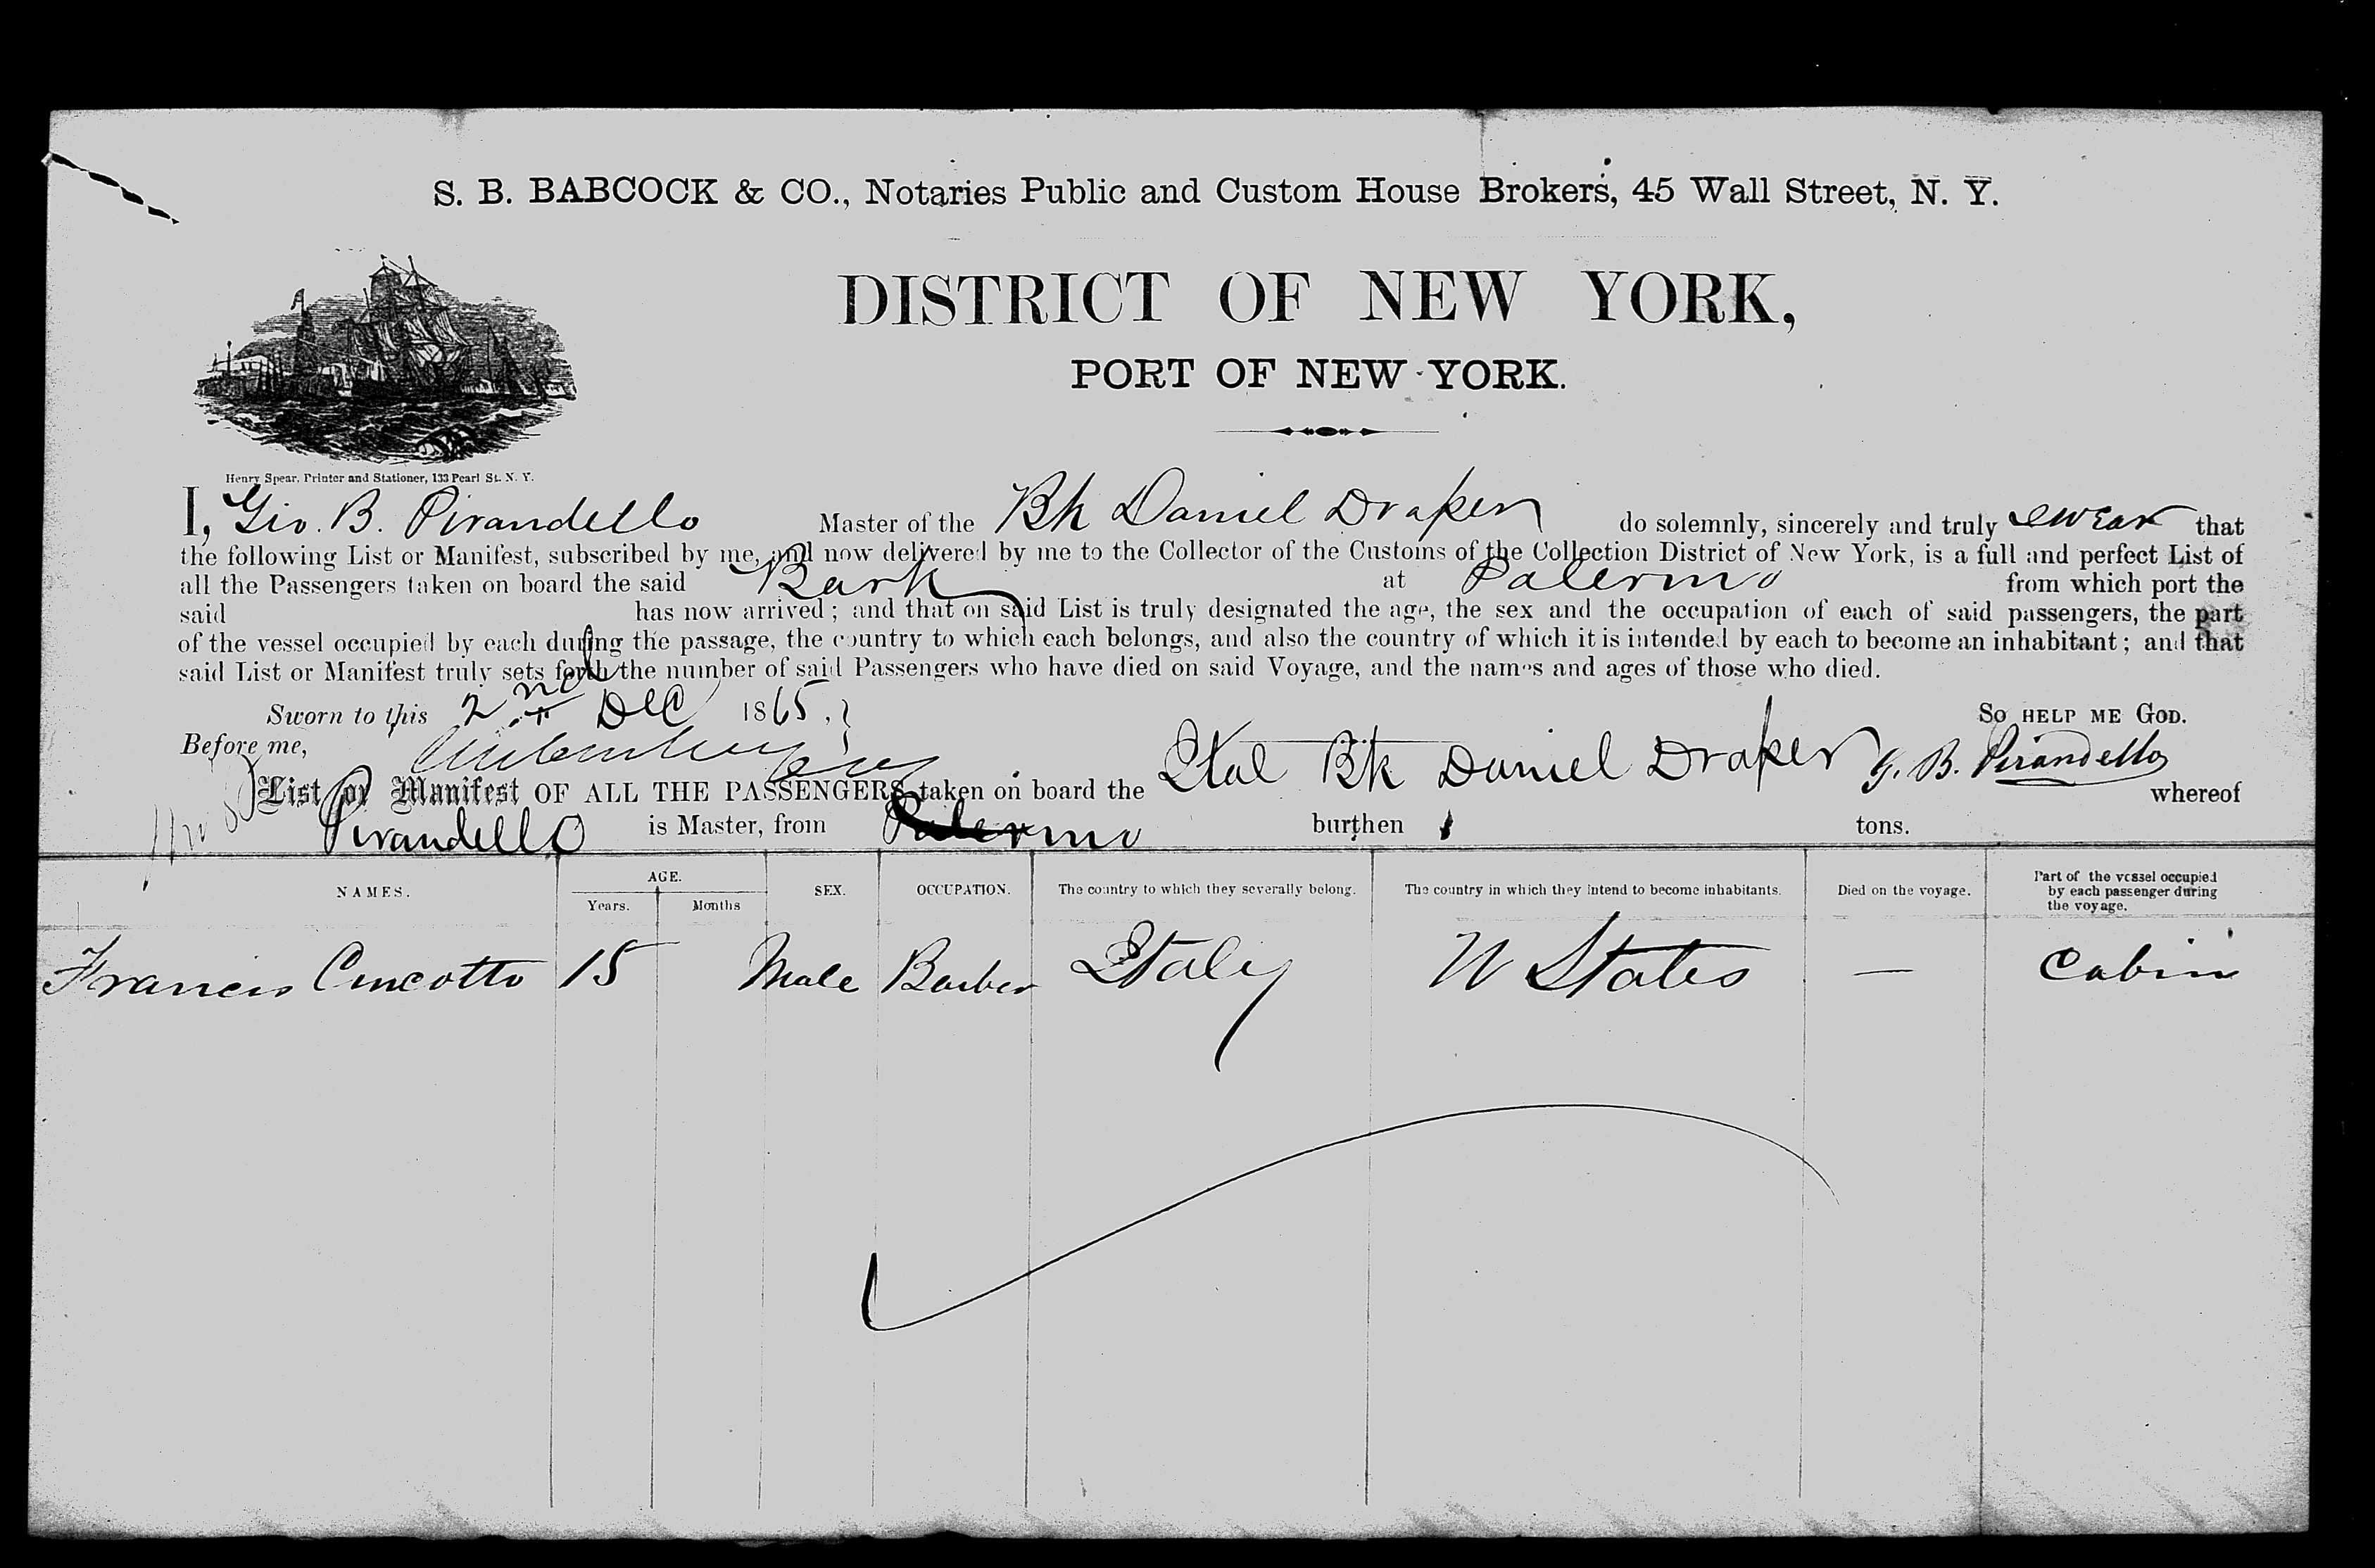 S. B. BABCOCK & CO., Notaries Public and Custom House Brokers, 45 Wall Street, N. Y.
DISTRICT OF NEW YORK,
PORT OF NEW YORK.
Henry Spear, Printer and Stationer, 133 Pearl St. N. Y.
I, Gio. B. Pirandello Master of the Bk Daniel Draper do solemnly, sincerely and truly swear that
the following List or Manifest, subscribed by me, and now delivered by me to the Collector of the Customs of the Collection District of New York, is a full and perfect List of
all the Passengers taken on board the said Bark at Palermo from which port the
said has now arrived; and that on said List is truly designated the age, the sex and the occupation of each of said passengers, the part
of the vessel occupied by each during the passage, the country to which each belongs, and also the country of which it is intended by each to become an inhabitant; and that
said List or Manifest truly sets forth the number of said Passengers who have died on said Voyage, and the names and ages of those who died.
Sworn to this 2nd Dec 1865. SO HELP ME GOD.
Before me, G. B. Pirandello
List or Manifest OF ALL THE PASSENGERS taken on board the Ital Bk Daniel Draper whereof
Pirandello is Master, from Palermo burthen tons.
NAMES. AGE. Years. Months SEX. OCCUPATION. The country to which they severally belong. The country in which they intend to become inhabitants. Died on the voyage. Part of the vessel occupied by each passenger during the voyage.
Francis Cincotto 15 Male Barber Italy U States — Cabin